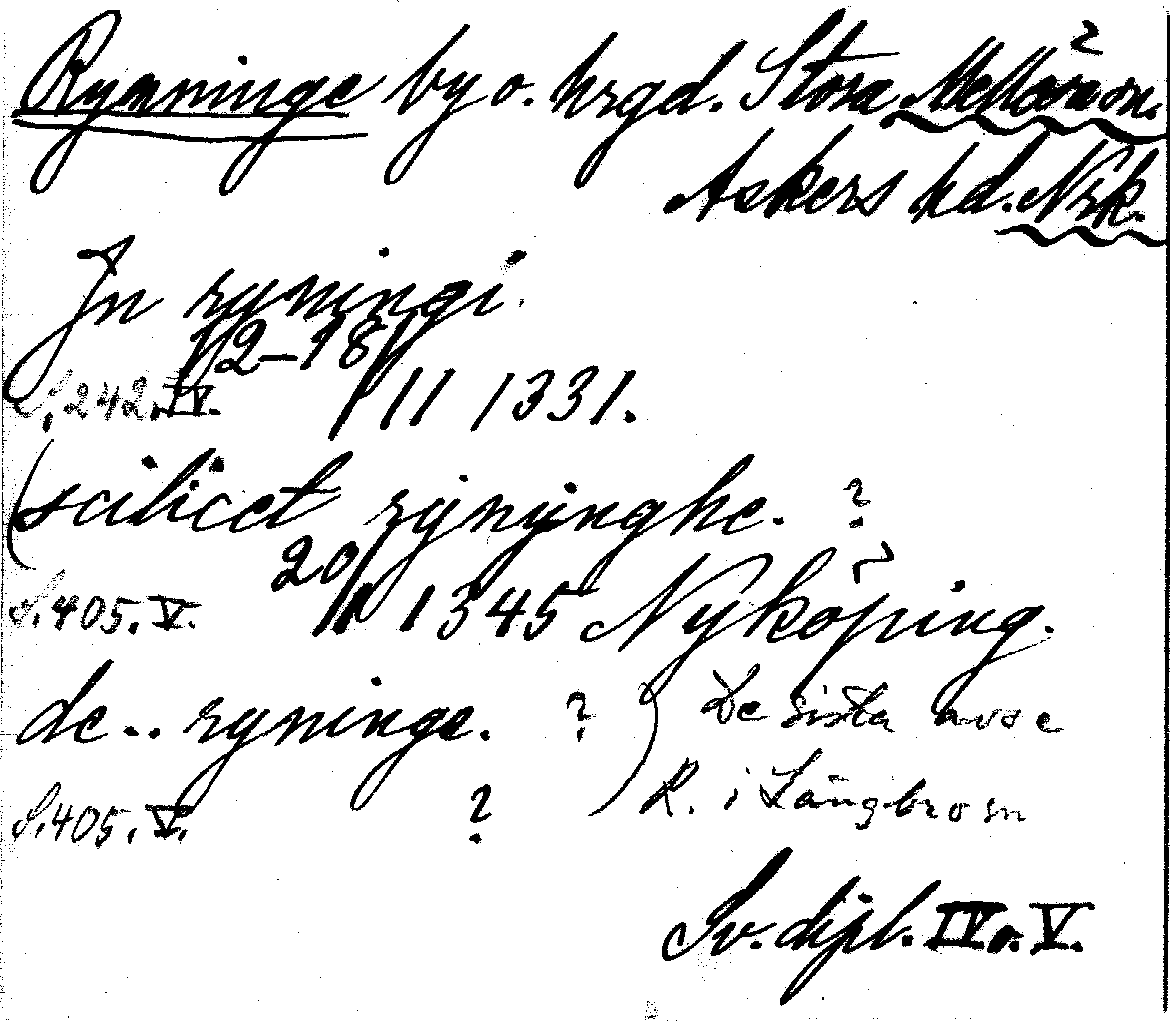 Rynninge by o. hrgd. Stora Mellösa sn.
Askers hd. Nrk.
In ryningi.
12-18/11 1331.
S. 242. IV.
(scilicet rynynghe. ?
20/11 1345 Nyköping.
S. 405. V.
de .. ryninge. ? )
De sista avse
R. i Längbro sn
S. 405. V. ?
Sv. dipl. IV o. V.